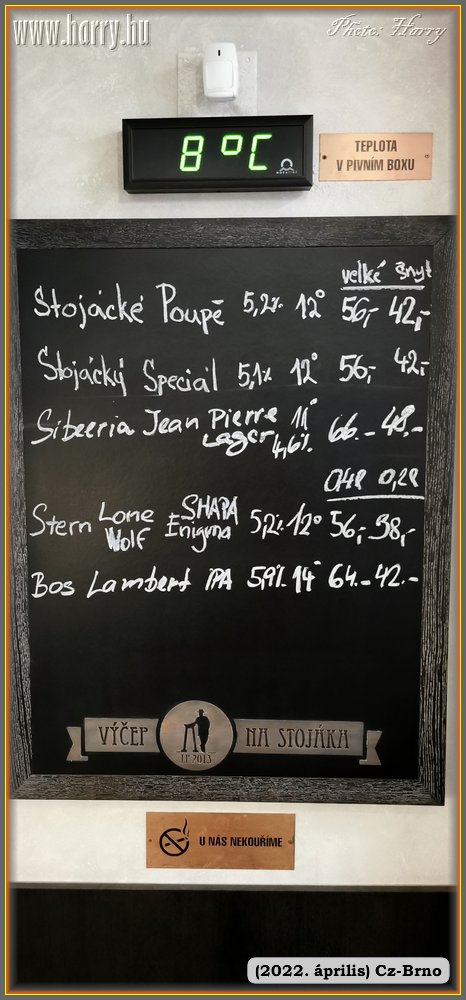 www.harry.hu
Photo: Harry
8°C
TEPLOTA
V PIVNÍM BOXU
velké šnyt
Stojácké Poupě 5,2% 12° 56,- 42,-
Stojácký Speciál 5,1% 12° 56,- 42,-
Sibeeria Jean Pierre 11°
Lager 4,6% 66.- 48.-
0,4l 0,2l
Stern Lone SHAPA 5,2% 12° 56,- 38,-
Wolf Enigma
Bos Lambert IPA 5,9% 14° 64.- 42.-
VÝČEP NA STOJÁKA
LP 2013
U NÁS NEKOUŘÍME
(2022. április) Cz-Brno